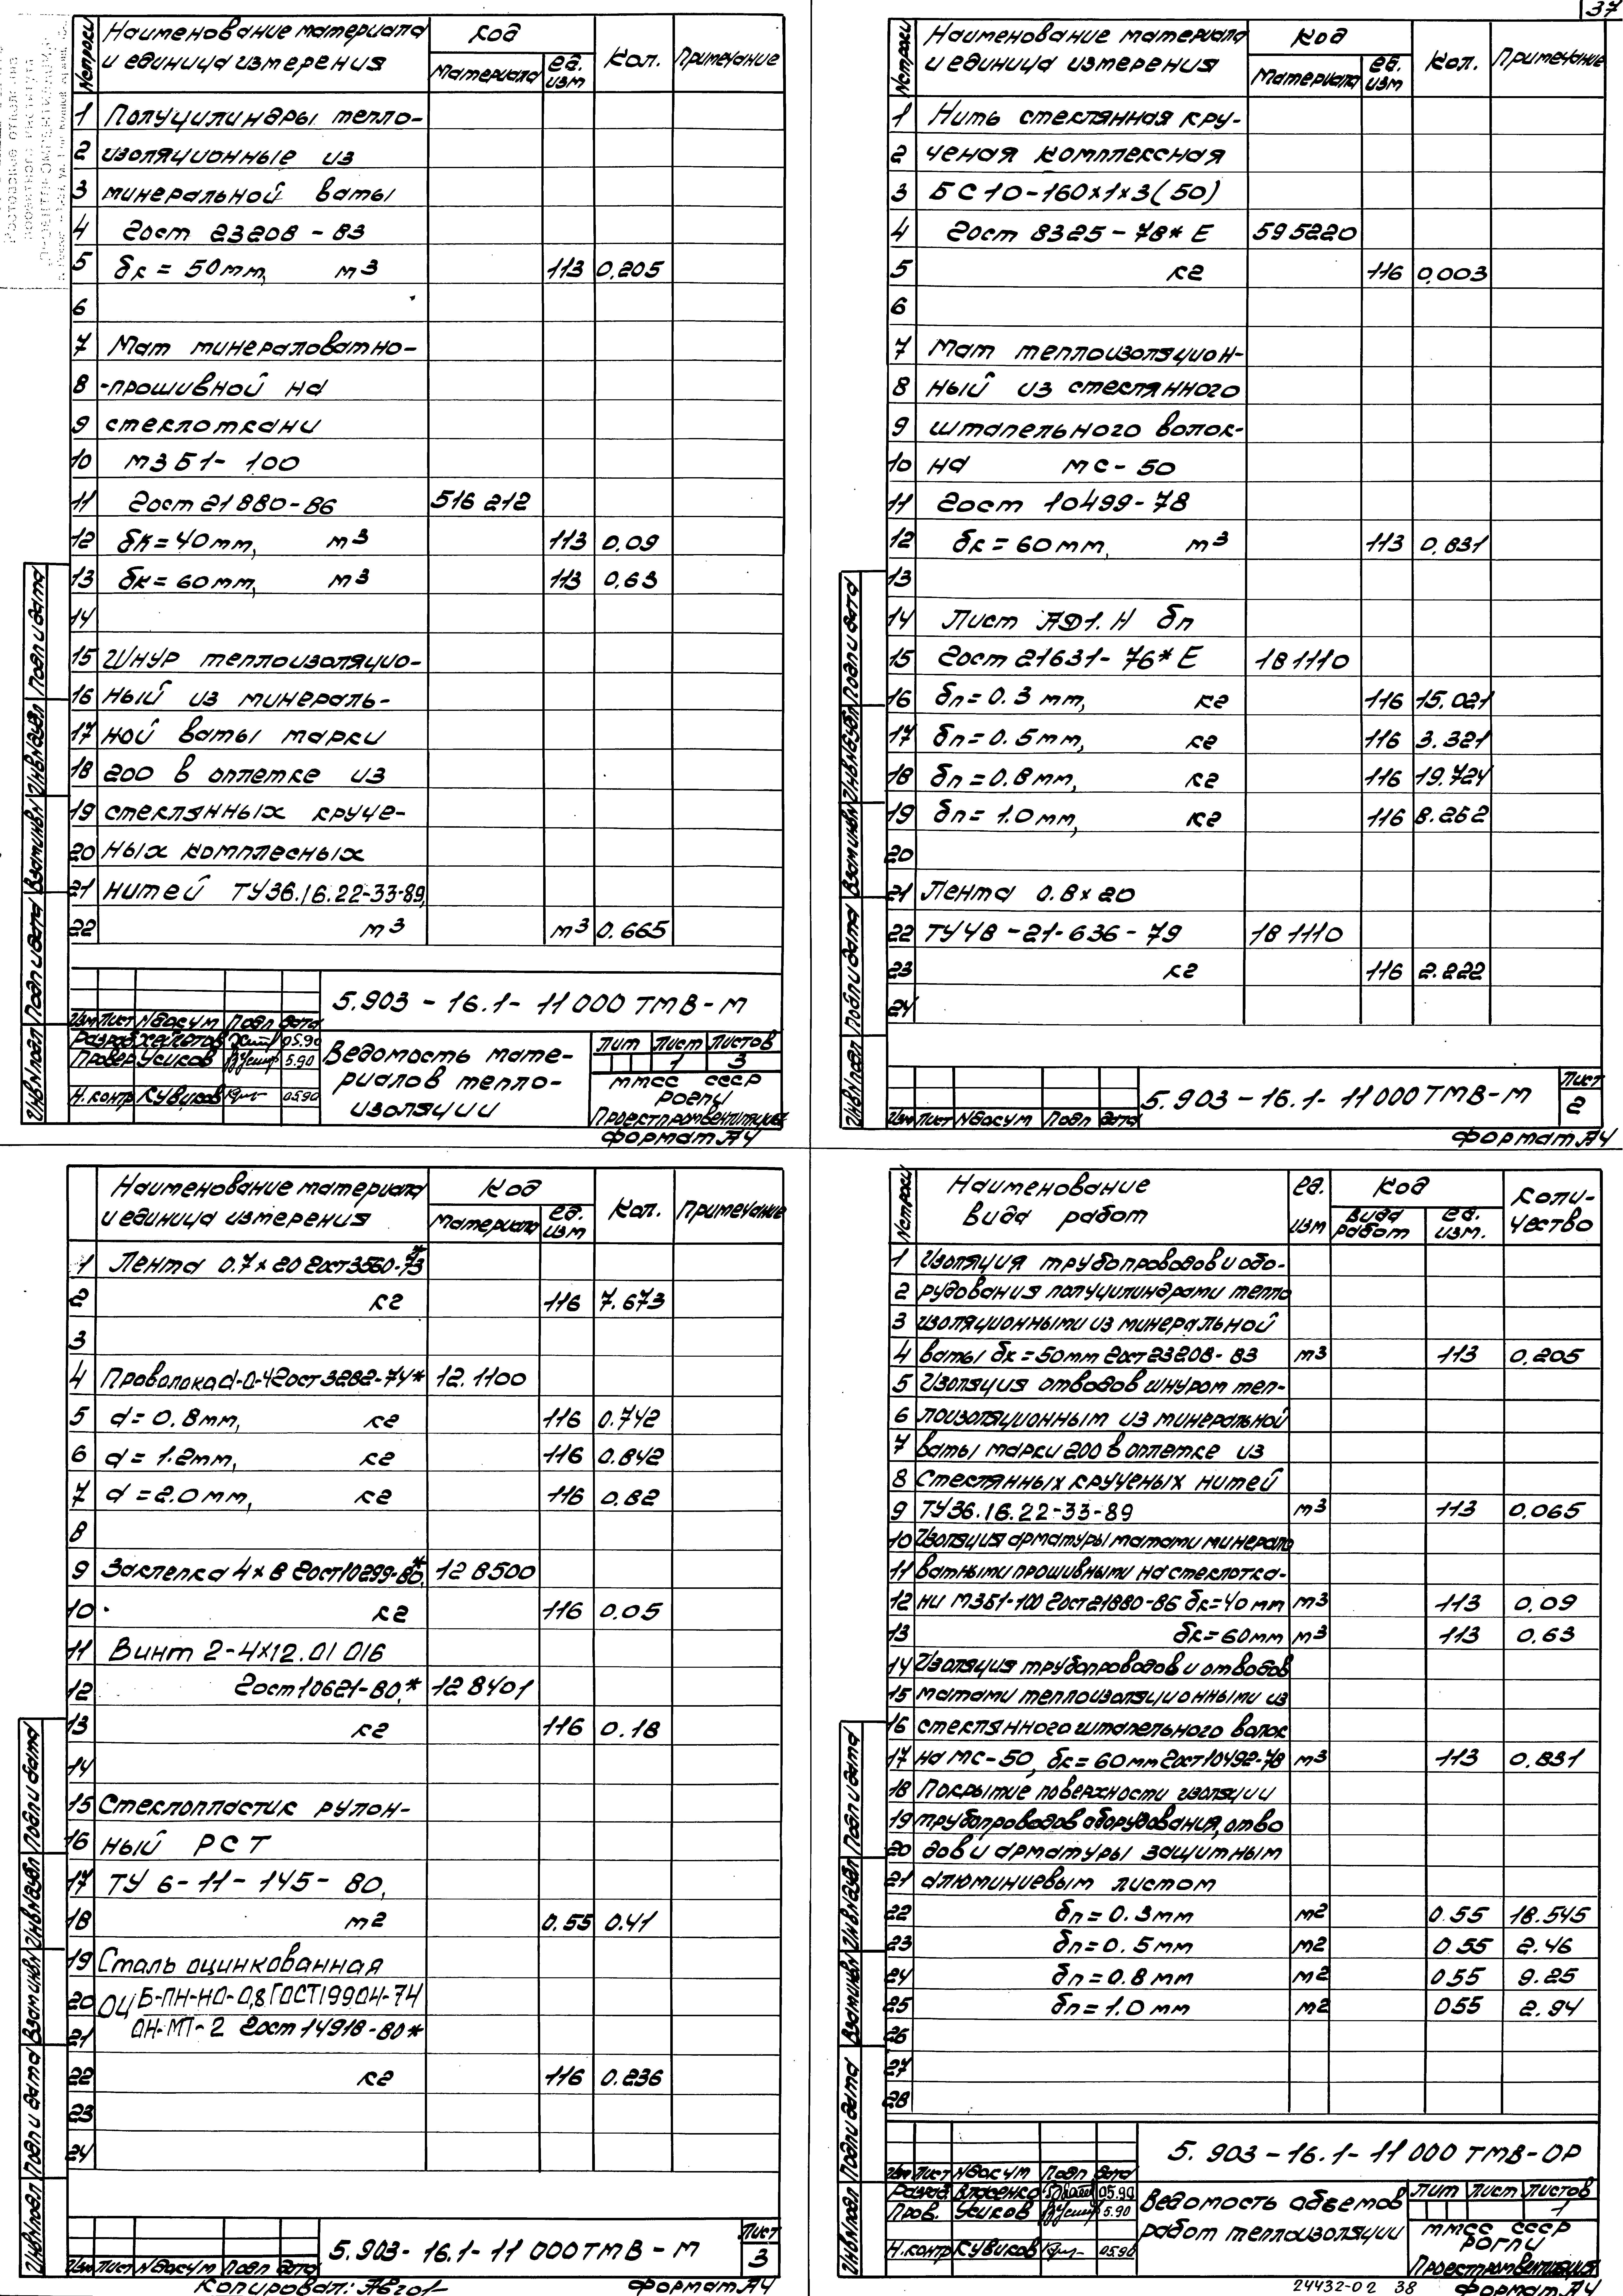 37
№ строки
Наименование материала
и единица измерения
Код
Материала
ед. изм
Кол.
Примечание
1 Полуцилиндры тепло-
2 изоляционные из
3 минеральной ваты
4 Гост 23208-83
5 δк = 50мм, м3 113 0.205
6
7 Мат минераловатно-
8 -прошивной на
9 стеклоткани
10 М3Б1-100
11 Гост 21880-86 516 212
12 δк = 40мм, м3 113 0.09
13 δк = 60мм, м3 113 0.63
14
15 Шнур теплоизоляцио-
16 ный из минераль-
17 ной ваты марки
18 200 в оплетке из
19 стеклянных круче-
20 ных комплесных
21 нитей ТУ36.16.22-33-89,
22 м3 м3 0.665
5.903-16.1-11000 ТМВ-М
Изм Лист №докум Подп Дата
Разраб 05.90
Провер Усиков 5.90
Н.контр Кувиков 05.90
Ведомость мате-
риалов тепло-
изоляции
Лит Лист Листов
1 3
ММСС СССР
Проектпромвентиляция
Формат А4
Инв№подл Подп и дата Взам инв№ Инв№дубл Подп и дата
№ строки
Наименование материала
и единица измерения
Код
Материала
ед. изм
Кол.
Примечание
1 Нить стеклянная кру-
2 ченая комплексная
3 БС10-160х1х3(50)
4 Гост 8325-78* Е 595220
5 кг 116 0,003
6
7 Мат теплоизоляцион-
8 ный из стеклянного
9 штапельного волок-
10 на МС-50
11 Гост 10499-78
12 δк = 60мм, м3 113 0,831
13
14 Лист АД1.Н δп
15 Гост 21631-76* Е 18 1110
16 δп = 0.3 мм, кг 116 15.021
17 δп = 0.5мм, кг 116 3.321
18 δп = 0.8мм, кг 116 19.724
19 δп = 1.0мм, кг 116 8.262
20
21 Лента 0.8х20
22 ТУ48-21-636-79 18 1110
23 кг 116 2.222
24
Изм Лист №докум Подп Дата
5.903-16.1-11000 ТМВ-М
Лист
2
Формат А4
Инв№подл Подп и дата Взам инв№ Инв№дубл Подп и дата
Наименование материала
и единица измерения
Код
Материала
ед. изм
Кол.
Примечание
1 Лента 0.7х20 Гост3560-73*
2 кг 116 7.673
3
4 Проволока d-0-4Гост3282-74* 12.1100
5 d = 0.8мм, кг 116 0.742
6 d = 1.2мм, кг 116 0.842
7 d = 2.0мм, кг 116 0.82
8
9 Заклепка 4х8 Гост10299-80* 12 8500
10 кг 116 0.05
11 Винт 2-4х12.01 016
12 Гост10621-80,* 12 8401
13 кг 116 0.18
14
15 Стеклопластик рулон-
16 ный РСТ
17 ТУ 6-11-145-80,
18 м2 0.55 0.41
19 Сталь оцинкованная
20 ОЦ Б-ПН-НО-0,8 ГОСТ19904-74
21 ОН-МТ-2 Гост 14918-80*
22 кг 116 0.236
23
24
Изм Лист №докум Подп Дата
5.903-16.1-11 000ТМВ-М
Лист
3
Копировал:
Формат А4
Инв№подл Подп и дата Взам инв№ Инв№дубл Подп и дата
№ строки
Наименование
вида работ
ед. изм
Код
вида работ
ед. изм.
Коли-
чество
1 Изоляция трубопроводов и обо-
2 рудования полуцилиндрами тепло
3 изоляционными из минеральной
4 ваты δк = 50мм Гост23208-83 м3 113 0.205
5 Изоляция отводов шнуром теп-
6 лоизоляционным из минеральной
7 ваты марки 200 в оплетке из
8 Стеклянных крученых нитей
9 ТУ36.16.22-33-89 м3 113 0.065
10 Изоляция арматуры матами минерало
11 ватными прошивными на стеклотка-
12 ни М3Б1-100 Гост21880-86 δк=40мм м3 113 0.09
13 δк=60мм м3 113 0.63
14 Изоляция трубопроводов и отводов
15 матами теплоизоляционными из
16 стеклянного штапельного волок
17 на МС-50, δк = 60мм Гост10492-78 м3 113 0.831
18 Покрытие поверхности изоляции
19 трубопроводов оборудования, отво
20 дов и арматуры защитным
21 алюминиевым листом
22 δп = 0.3мм м2 0.55 18.545
23 δп = 0.5мм м2 0.55 2.46
24 δп = 0.8мм м2 055 9.25
25 δп = 1.0мм м2 055 2.94
26
27
28
5.903-16.1-11 000 ТМВ-ОР
Изм Лист №докум Подп Дата
Разраб Власенко 05.90
Пров. Усиков 5.90
Н.контр Кувиков 05.90
Ведомость объемов
работ теплоизоляции
Лит Лист Листов
1
ММСС СССР
Проектпромвентиляция
24432-02 38
Формат А4
Инв№подл Подп и дата Взам инв№ Инв№дубл Подп и дата